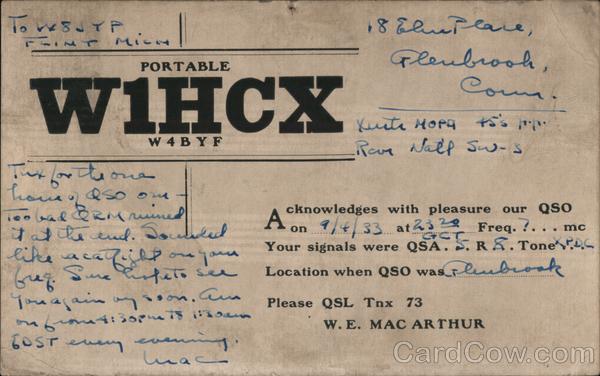 To W8JYP
FLINT MICH
18 Elm Place,
Glenbrook,
Conn.
PORTABLE
W1HCX
W4BYF
Xmtr MOPA 45's
Rcvr Nat'l SW-3
Tnx for the one
hour of QSO om-
Too bad QRM ruined
it at the end. Sounded
like a catfight on your
freq. Sure hope to see
you again vy soon. Am
on from 4:30pm to 1:30am
EDST every evening.
Mac
Acknowledges with pleasure our QSO
on 9/4/33 at 2320 Freq. 7... mc
GCT
Your signals were QSA. 5. R 8. Tone X.P.D.C.
Location when QSO was Glenbrook
Please QSL Tnx 73
W. E. MAC ARTHUR
CardCow.com